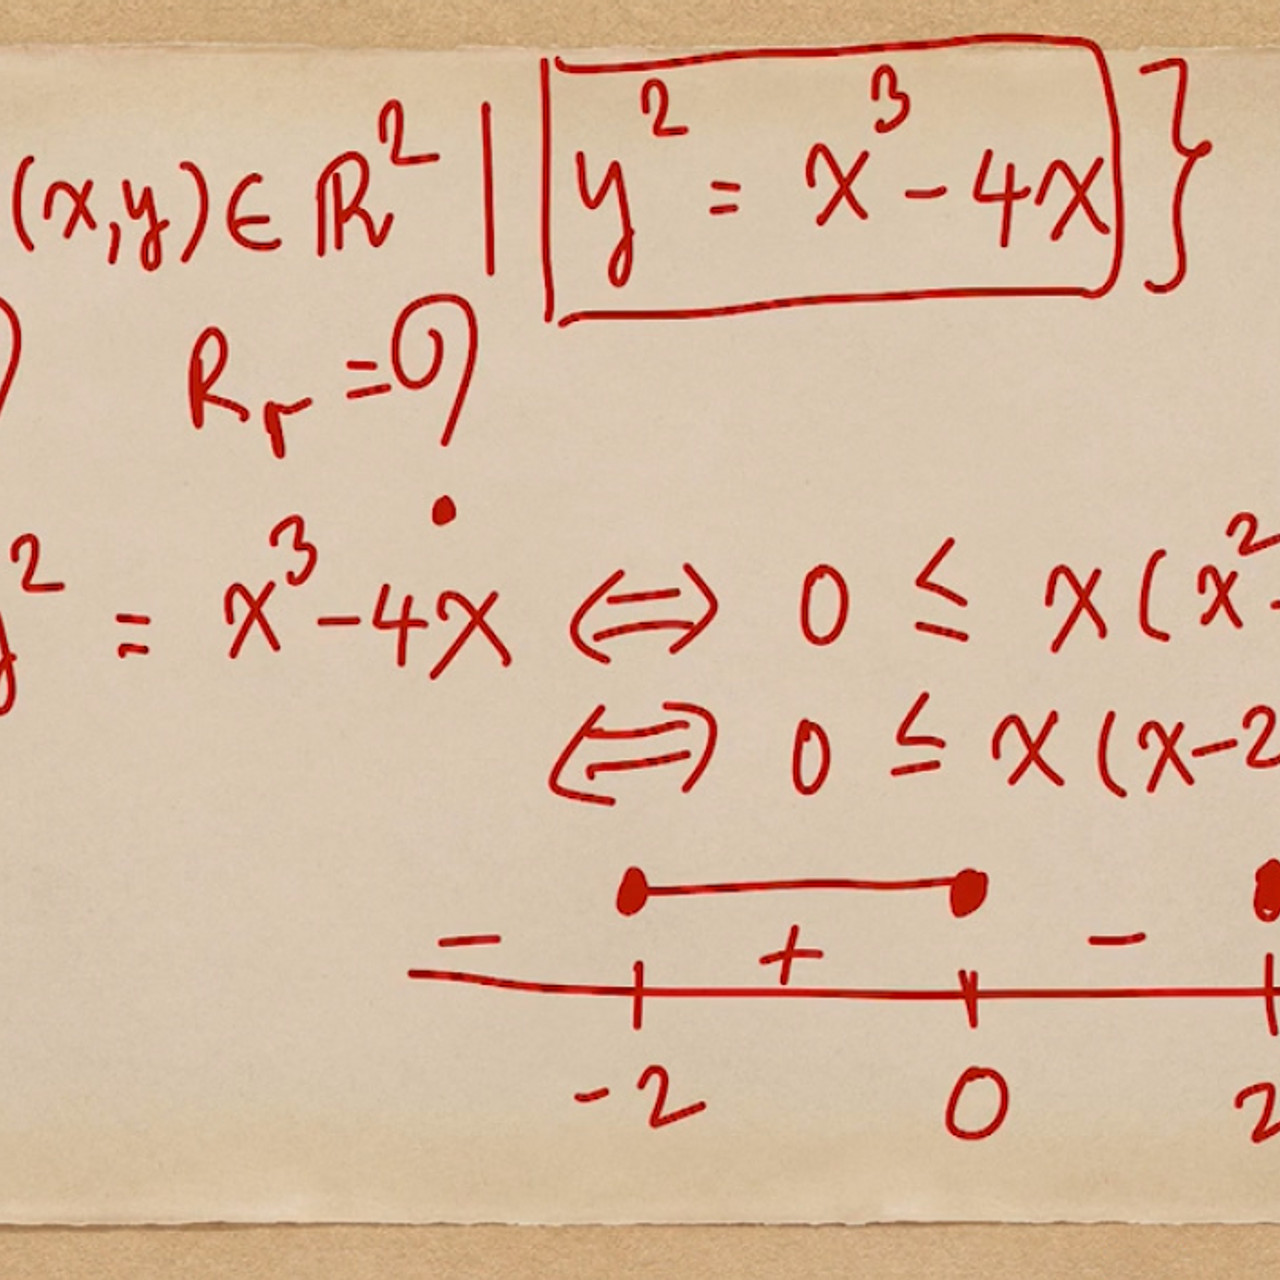 (x,y) ∈ ℝ² | y² = x³ - 4x }
R_r = ?
y² = x³ - 4x ⟺ 0 ≤ x(x²-
⟺ 0 ≤ x(x-2
- + -
-2 0 2